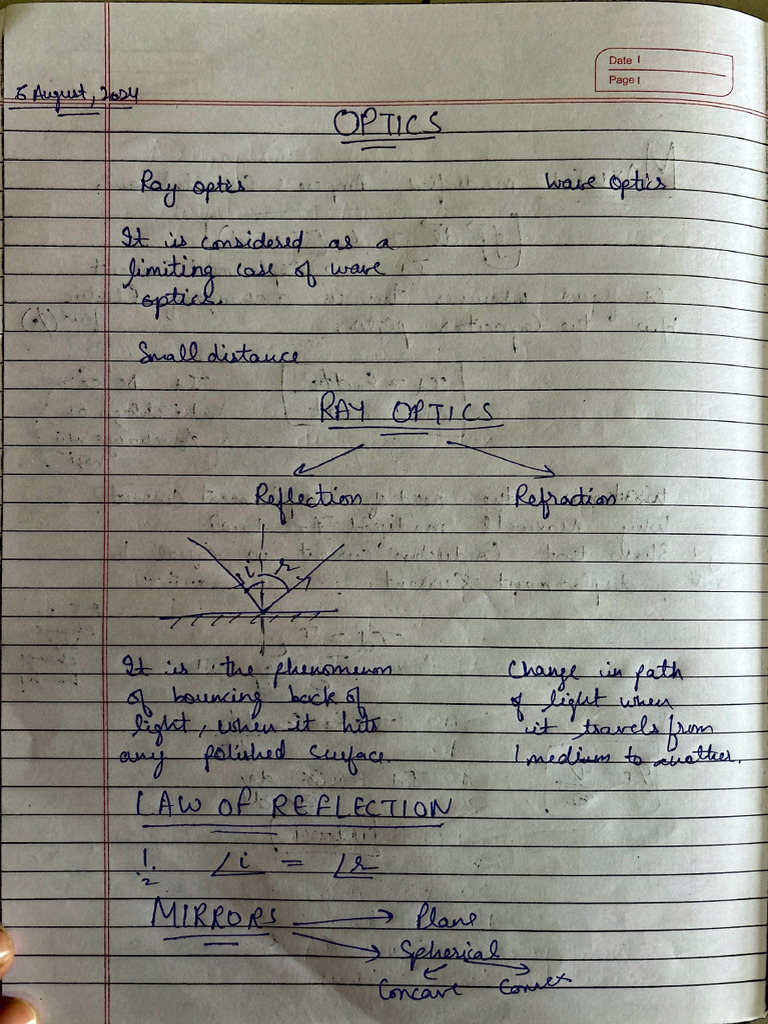 Date
Page
5 August, 2024
OPTICS
Ray optics
Wave Optics
It is considered as a
limiting case of wave
optics.
Small distance
RAY OPTICS
Reflection
Refraction
i r
It is the phenomenon
of bouncing back of
light, when it hits
any polished surface.
Change in path
of light when
it travels from
1 medium to another.
LAW OF REFLECTION
1. ∠i = ∠r
2
MIRRORS → Plane
→ Spherical
Concave Convex